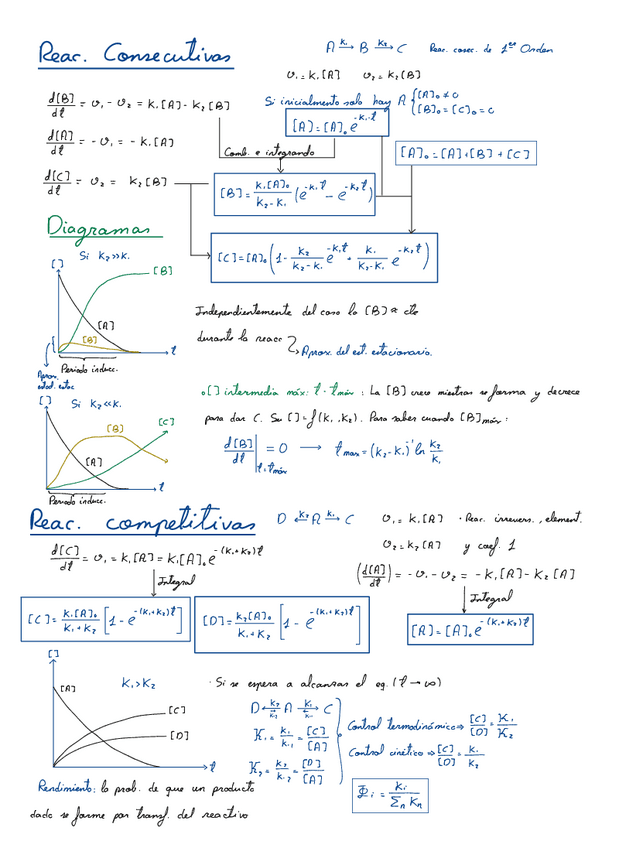 Reac. Consecutivas
A →(k₁) B →(k₂) C   Reac. consec. de 1er Orden
v₁ = k₁[A]   v₂ = k₂[B]
d[B]/dt = v₁ - v₂ = k₁[A] - k₂[B]
Si inicialmente solo hay A { [A]₀ ≠ 0
[B]₀ = [C]₀ = 0
[A] = [A]₀ e^(-k₁·t)
d[A]/dt = -v₁ = -k₁[A]
Comb. e integrando
[A]₀ = [A] + [B] + [C]
d[C]/dt = v₂ = k₂[B]
[B] = k₁[A]₀/(k₂-k₁) (e^(-k₁t) - e^(-k₂t))
Diagramas
[C] = [A]₀ (1 - k₂/(k₂-k₁) e^(-k₁t) + k₁/(k₂-k₁) e^(-k₂t))
Si k₂ >> k₁
[ ]
[B]
[A]
[B]
t
Periodo induc.
Aprox. estad. estac
Independientemente del caso la [B] ≈ cte
durante la reacc
Aprox. del est. estacionario.
[ ] intermedia máx: t = tmáx : La [B] crece mientras se forma y decrece
para dar C. Su [ ] = f(k₁, k₂). Para saber cuando [B]máx:
d[B]/dt |t=tmáx = 0 → tmax = (k₂-k₁)⁻¹ ln k₂/k₁
Si k₂ << k₁
[ ]
[C]
[B]
[A]
t
Periodo induc.
Reac. competitivas
D ←(k₂) A →(k₁) C
v₁ = k₁[A]   · Reac. irrevers., element.
v₂ = k₂[A]   y coef. 1
d[C]/dt = v₁ = k₁[A] = k₁[A]₀ e^(-(k₁+k₂)t)
(d[A]/dt) = -v₁ - v₂ = -k₁[A] - k₂[A]
Integral
Integral
[C] = k₁[A]₀/(k₁+k₂) [1 - e^(-(k₁+k₂)t)]
[D] = k₂[A]₀/(k₁+k₂) [1 - e^(-(k₁+k₂)t)]
[A] = [A]₀ e^(-(k₁+k₂)t)
[ ]
[A]
k₁ > k₂
[C]
[D]
t
· Si se espera a alcanzar el eq. (t → ∞)
D ⇄(k₂, k₋₂) A ⇄(k₁, k₋₁) C
K₁ = k₁/k₋₁ = [C]/[A]
K₂ = k₂/k₋₂ = [D]/[A]
Control termodinámico ⇒ [C]/[D] = K₁/K₂
Control cinético ⇒ [C]/[D] = k₁/k₂
Rendimiento: la prob. de que un producto
dado se forme por transf. del reactivo
Φi = ki/Σn kn